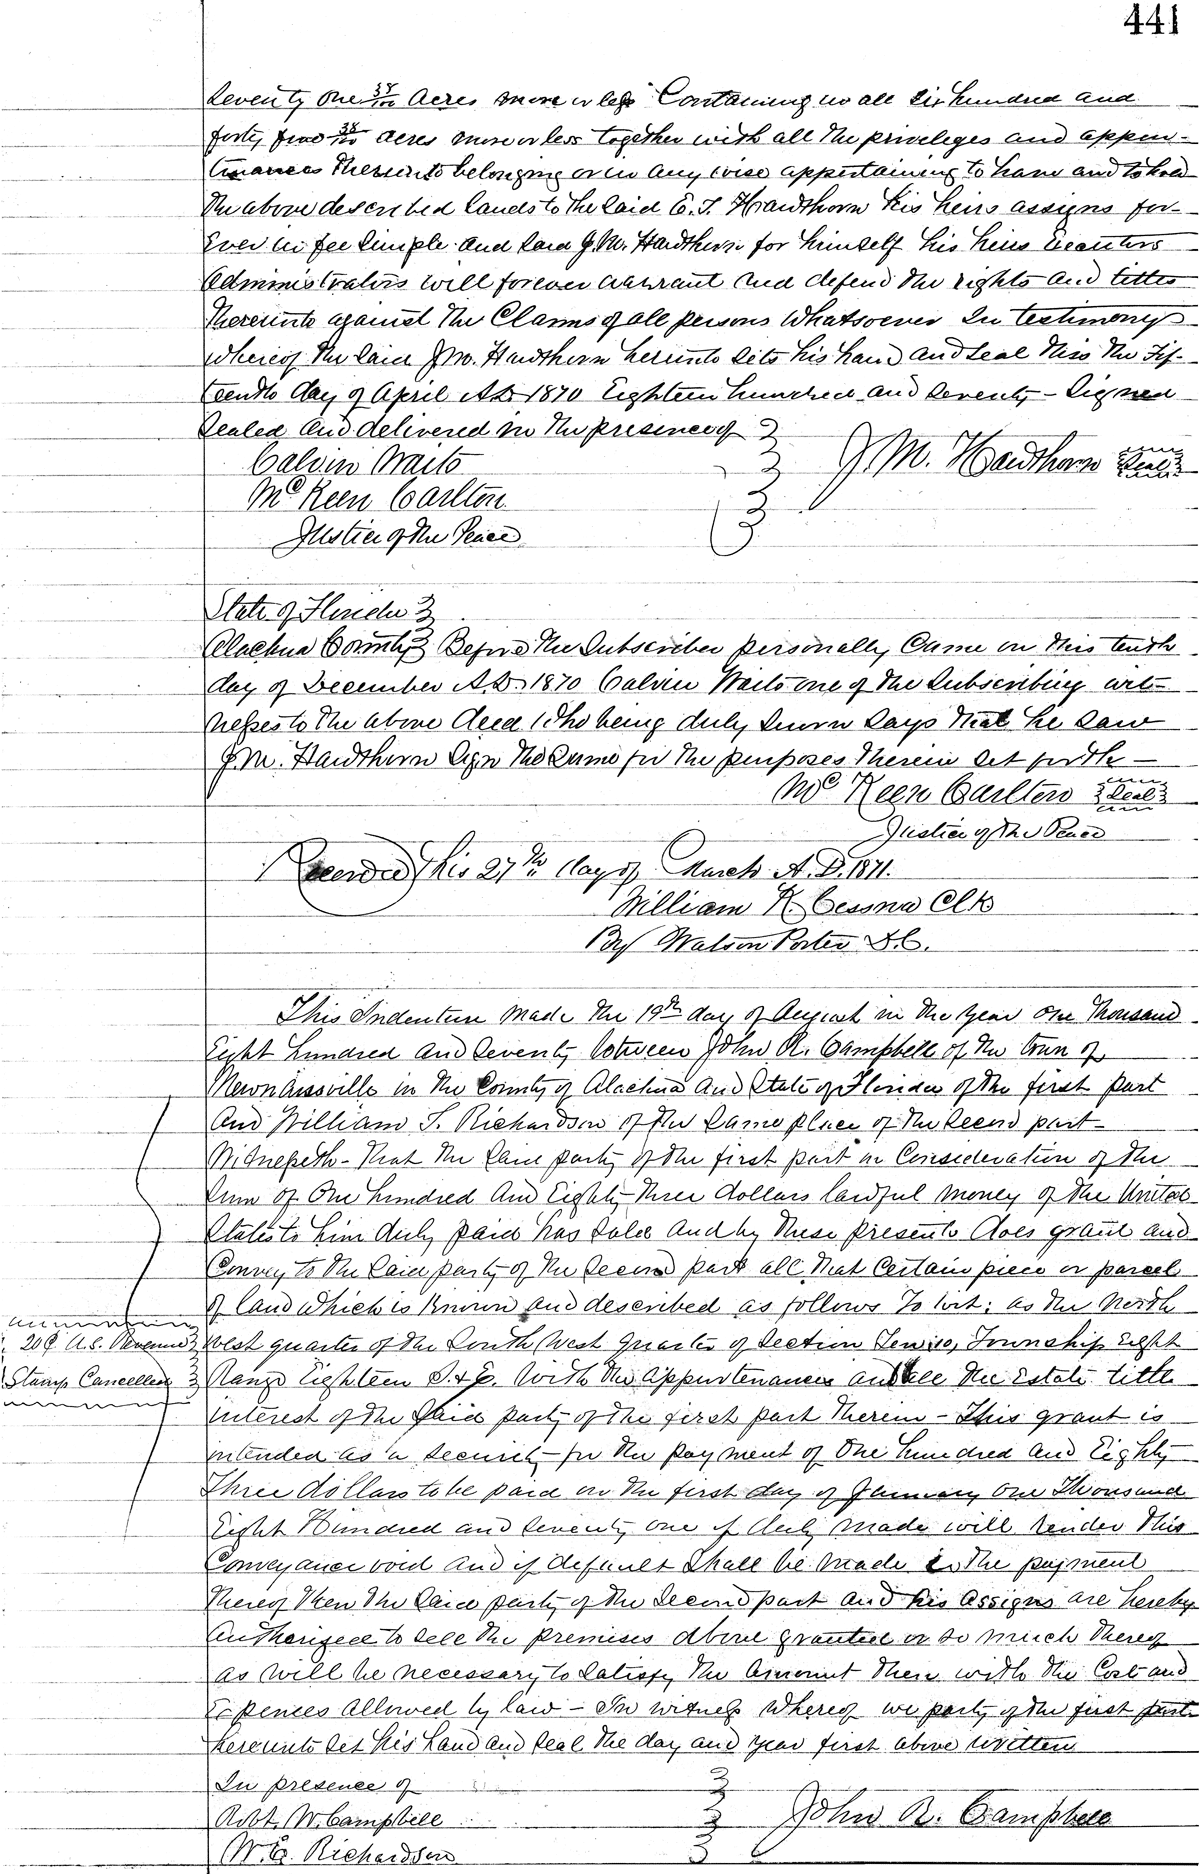 441
Seventy One 38/100 Acres more or less Containing in all Six hundred and
forty five 38/100 acres more or less together with all the priveleges and appur-
tinances thereunto belonging or in any wise appertaining to have and to hold
the above described lands to the said E. T. Hawthorn his heirs assigns for-
Ever in fee simple and said J. M. Hawthorn for himself his heirs Executors
Administrators will forever warrant and defend the rights and titles
thereunto against the Claims of all persons whatsoever In testimony
whereof the said J. M. Hawthorn hereunto sets his hand and seal this the Fif-
teenth day of April A.D. 1870 Eighteen hundred and Seventy - Signed
Sealed and delivered in the presence of
Calvin Waits
J. M. Hawthorn Seal
McKeen Carlton
Justice of the Peace
State of Florida
Alachua County Before the Subscriber personally Came on this tenth
day of December A.D. 1870 Calvin Waits one of the Subscribing wit-
nesses to the above deed who being duly sworn says that he saw
J. M. Hawthorn sign the same for the purposes therein set forth -
McKeen Carlton Seal
Justice of the Peace
Recorded this 27th day of March A.D. 1871.
William K. Cessna Clk
By Watson Porter D.C.
This Indenture Made the 19th day of August in the year One Thousand
Eight hundred and Seventy between John R. Campbell of the town of
Newnansville in the County of Alachua and State of Florida of the first part
And William S. Richardson of the same place of the Second part -
Witnesseth - that the said party of the first part in Consideration of the
Sum of One hundred and Eighty three dollars lawful money of the United
States to him duly paid has sold and by these presents does grant and
Convey to the said party of the second part all that certain piece or parcel
of land which is known and described as follows to wit: as the North
20¢ U.S. Revenue
West quarter of the South West quarter of Section Ten 10, Township Eight
Stamp Cancelled
Range Eighteen S. & E. with the Appurtenances and all the Estate title
interest of the said party of the first part therein - This grant is
intended as a security for the payment of One hundred and Eighty
Three dollars to be paid on the first day of January One Thousand
Eight Hundred and Seventy one if duly made will render this
Conveyance void and if default shall be made in the payment
thereof then the said party of the second part and his assigns are hereby
Authorized to sell the premises above granted or so much thereof
as will be necessary to satisfy the amount then with the Cost and
Expences allowed by law - In witness whereof we party of the first part
hereunto set his hand and seal the day and year first above written
In presence of
Robt. W. Campbell
John R. Campbell
W. G. Richardson